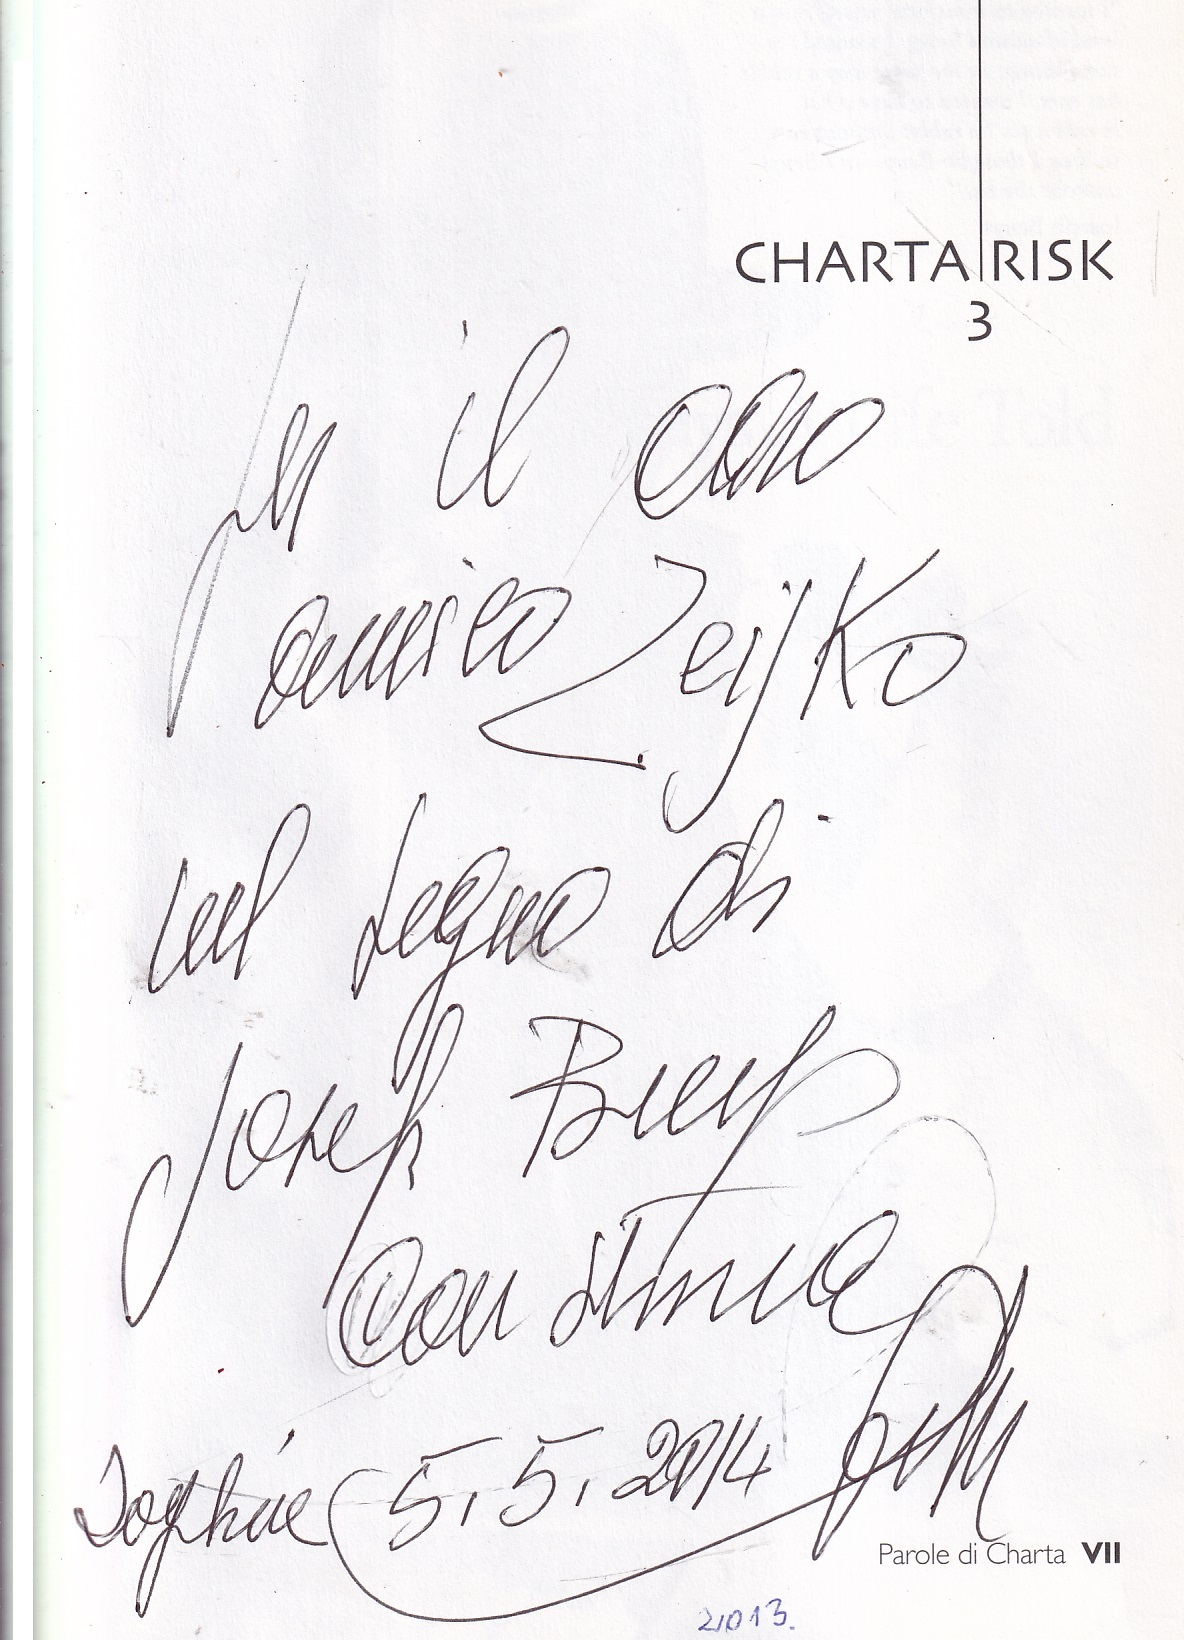 CHARTA RISK
3
Per il caro
amico Zeijko
nel segno di
Joseph Beuys
con stima
5.5.2014
Parole di Charta VII
21013.